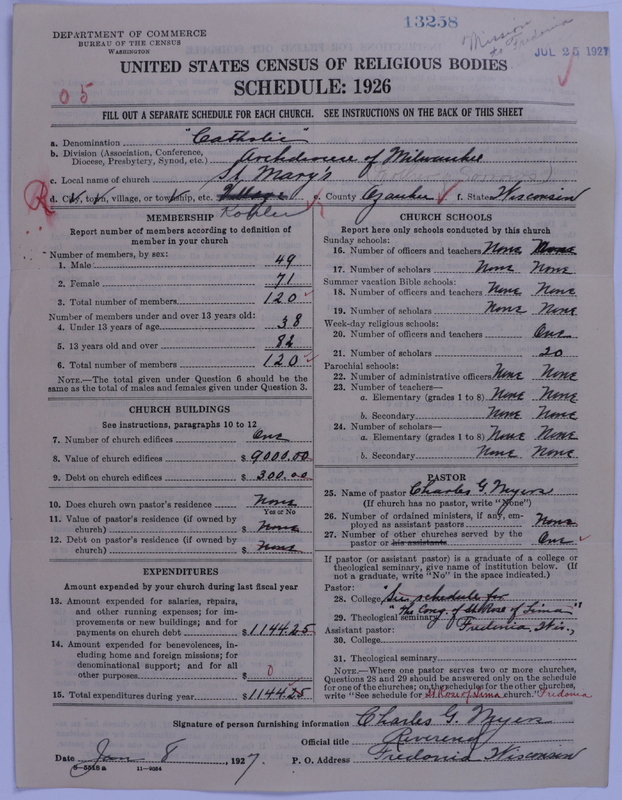 13258
Mission to Fredonia
JUL 25 1927
DEPARTMENT OF COMMERCE
BUREAU OF THE CENSUS
WASHINGTON
UNITED STATES CENSUS OF RELIGIOUS BODIES
SCHEDULE: 1926
0 5
FILL OUT A SEPARATE SCHEDULE FOR EACH CHURCH. SEE INSTRUCTIONS ON THE BACK OF THIS SHEET
a. Denomination "Catholic"
b. Division (Association, Conference, Diocese, Presbytery, Synod, etc.) Archdiocese of Milwaukee
c. Local name of church St. Mary's
R d. City, town, village, or township, etc. Village Kohler e. County Ozaukee f. State Wisconsin
MEMBERSHIP
Report number of members according to definition of member in your church
Number of members, by sex:
1. Male 49
2. Female 71
3. Total number of members 120
Number of members under and over 13 years old:
4. Under 13 years of age 38
5. 13 years old and over 82
6. Total number of members 120
NOTE.—The total given under Question 6 should be the same as the total of males and females given under Question 3.
CHURCH BUILDINGS
See instructions, paragraphs 10 to 12
7. Number of church edifices One
8. Value of church edifices $ 9000.00
9. Debt on church edifices $ 300.00
10. Does church own pastor's residence None
Yes or No
11. Value of pastor's residence (if owned by church) $ None
12. Debt on pastor's residence (if owned by church) $ None
EXPENDITURES
Amount expended by your church during last fiscal year
13. Amount expended for salaries, repairs, and other running expenses; for improvements or new buildings; and for payments on church debt $ 1144.25
14. Amount expended for benevolences, including home and foreign missions; for denominational support; and for all other purposes $ 0
15. Total expenditures during year $ 1144.25
CHURCH SCHOOLS
Report here only schools conducted by this church
Sunday schools:
16. Number of officers and teachers None None
17. Number of scholars None None
Summer vacation Bible schools:
18. Number of officers and teachers None None
19. Number of scholars None None
Week-day religious schools:
20. Number of officers and teachers One
21. Number of scholars 20
Parochial schools:
22. Number of administrative officers None None
23. Number of teachers—
a. Elementary (grades 1 to 8) None None
b. Secondary None None
24. Number of scholars—
a. Elementary (grades 1 to 8) None None
b. Secondary None None
PASTOR
25. Name of pastor Charles G. Myers
(If church has no pastor, write "None")
26. Number of ordained ministers, if any, employed as assistant pastors None
27. Number of other churches served by the pastor or his assistants One
If pastor (or assistant pastor) is a graduate of a college or theological seminary, give name of institution below. (If not a graduate, write "No" in the space indicated.)
Pastor:
28. College "See schedule for
29. Theological seminary "the Cong. of St. Rose of Lima"
Assistant pastor: Fredonia, Wis.,
30. College
31. Theological seminary
NOTE.—Where one pastor serves two or more churches, Questions 28 and 29 should be answered only on the schedule for one of the churches; on the schedule for the other churches, write "See schedule for St Rose of Lima church." Fredonia
Signature of person furnishing information Charles G. Myers
Official title Reverend
Date Jan 8, 1927. P. O. Address Fredonia Wisconsin
8—5515 a 11—9264